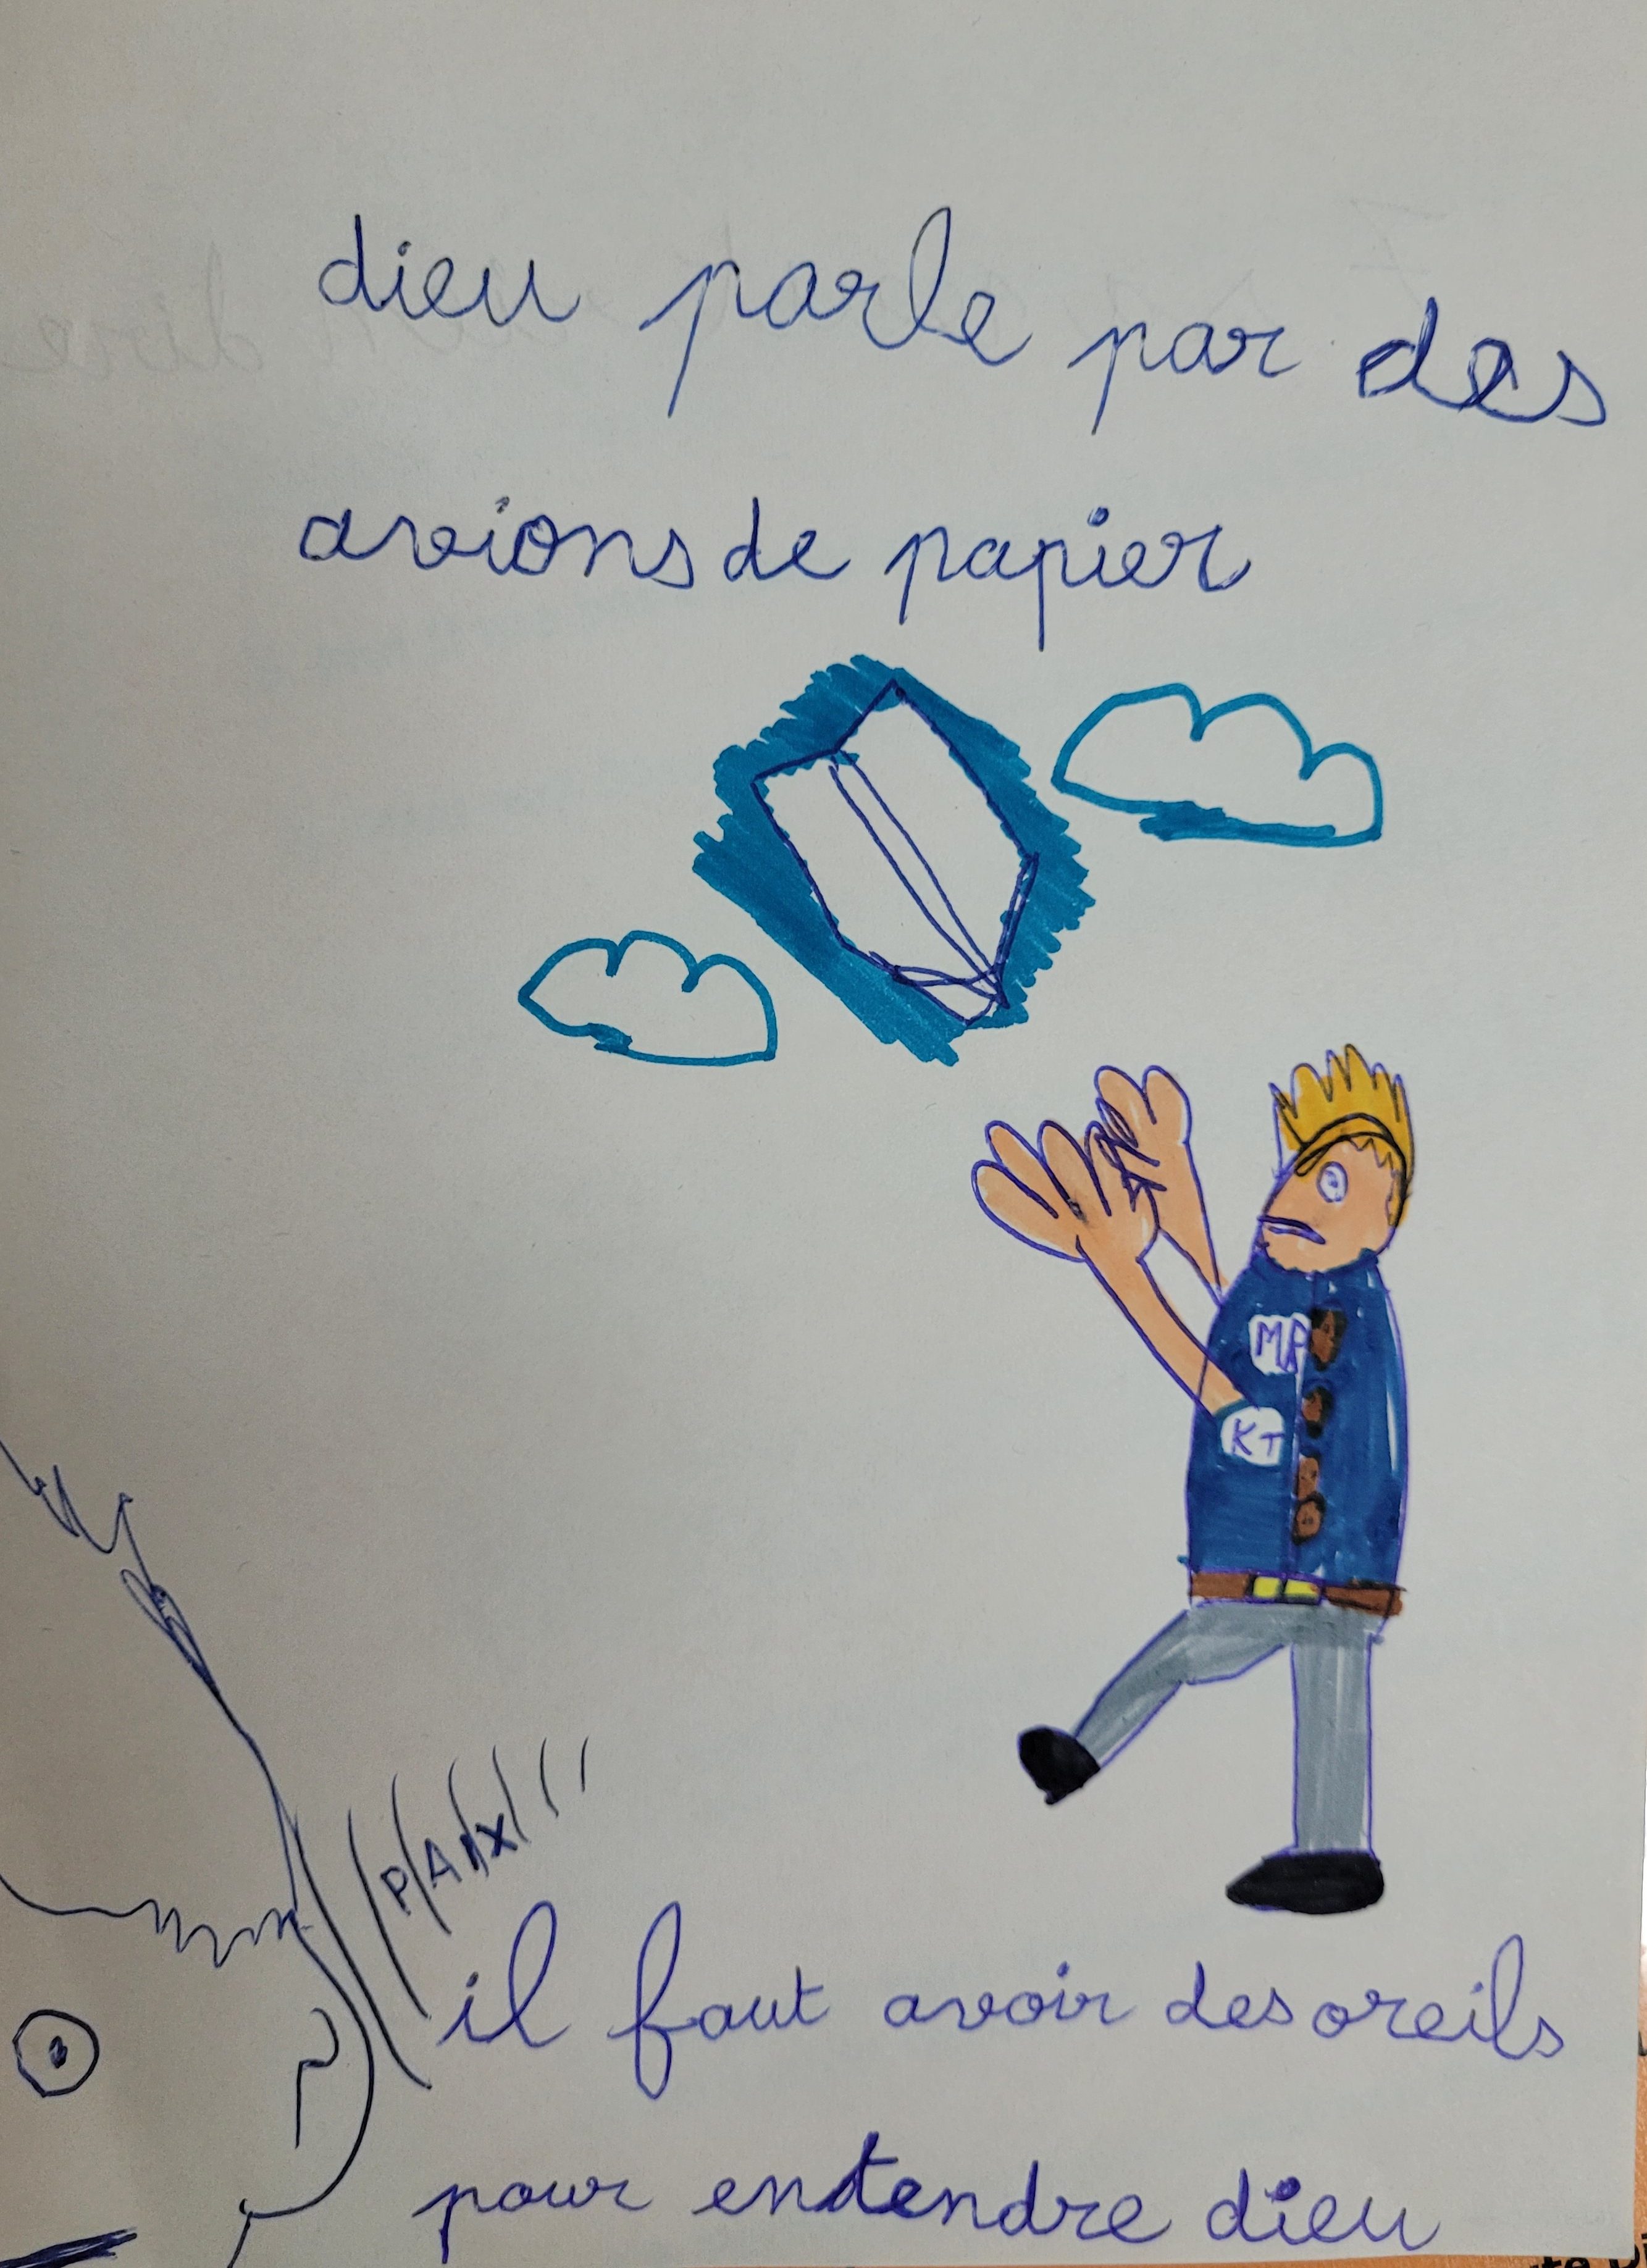 dieu parle par des
avions de papier
MP
KT
PAIX
il faut avoir des oreils
pour entendre dieu